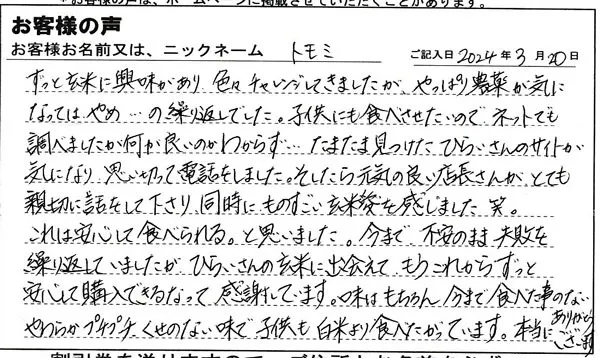 *お客様の声は、ホームページに掲載させていただくことがあります。
お客様の声
お客様お名前又は、ニックネーム トモミ ご記入日 2024年3月20日
ずっと玄米に興味があり 色々チャレンジしてきましたが、やっぱり農薬が気に
なってはやめ…の繰り返しでした。子供にも食べさせたいので ネットでも
調べましたが何が良いのかわからず… たまたま見つけた ひらいさんのサイトが
気になり 思い切って電話をしました。そしたら元気の良い店長さんが、とても
親切に話をして下さり 同時にものすごい玄米愛を感じました 笑。
これは安心して食べられる。と思いました。今まで 不安のまま 失敗を
繰り返していましたが ひらいさんの玄米に出会えて もうこれからずっと
安心して購入できるなって 感謝しています。味はもちろん 今まで食べた事のない
やわらか プチプチ くせのない味で 子供も 白米より食べたがっています。本当に
ありがとう
ございます